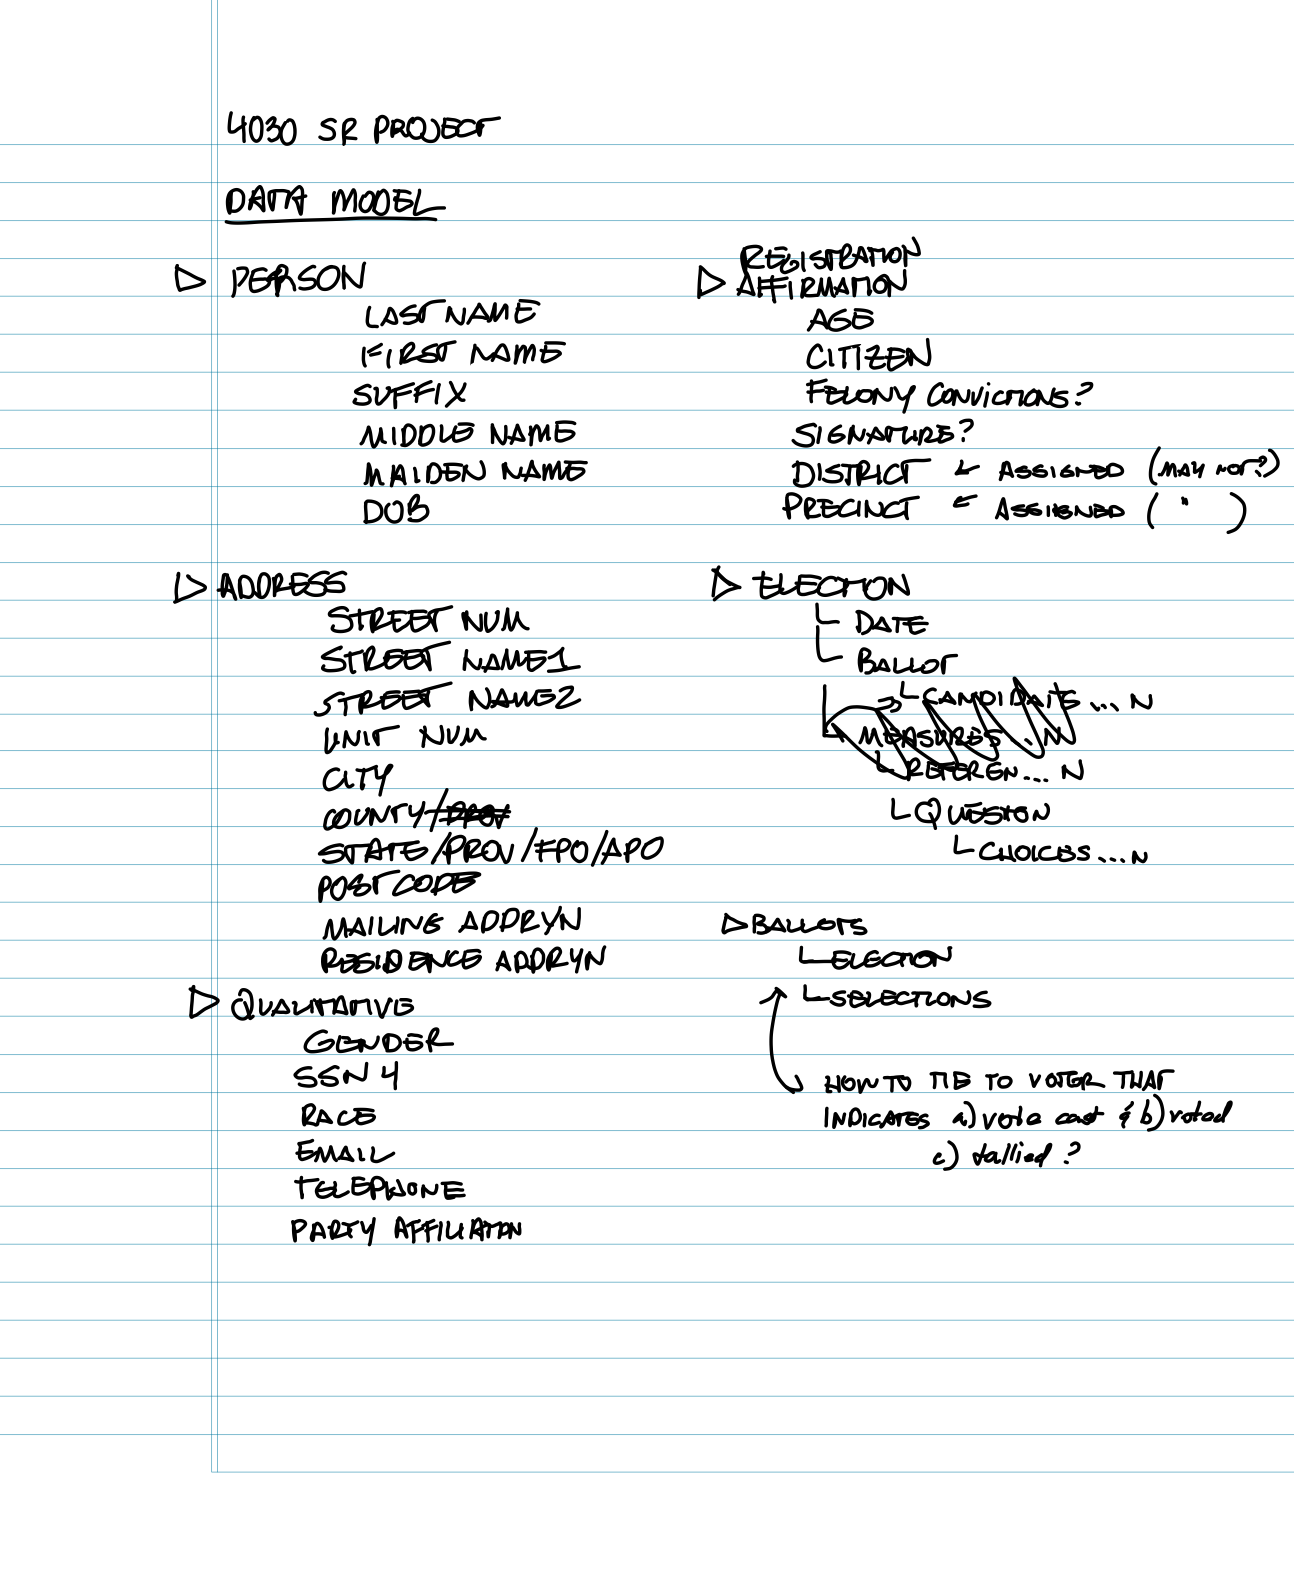 4030 SR PROJECT
DATA MODEL
▷ PERSON
LAST NAME
FIRST NAME
SUFFIX
MIDDLE NAME
MAIDEN NAME
DOB
▷ ADDRESS
STREET NUM
STREET NAME1
STREET NAME2
UNIT NUM
CITY
COUNTY/PROV
STATE/PROV/FPO/APO
POST CODE
MAILING ADDRYN
RESIDENCE ADDRYN
▷ QUALITATIVE
GENDER
SSN 4
RACE
EMAIL
TELEPHONE
PARTY AFFILIATION
REGISTRATION
▷ AFFIRMATION
AGE
CITIZEN
FELONY CONVICTIONS?
SIGNATURE?
DISTRICT ← ASSIGNED (MAY NOT?)
PRECINCT ← ASSIGNED ( " )
▷ ELECTION
DATE
BALLOT
CANDIDATES ... N
MEASURES ... N
REFEREN... N
QUESTION
CHOICES ... N
▷ BALLOTS
ELECTION
SELECTIONS
HOW TO TIE TO VOTER THAT
INDICATES a) vote cast & b) voted
c) tallied ?